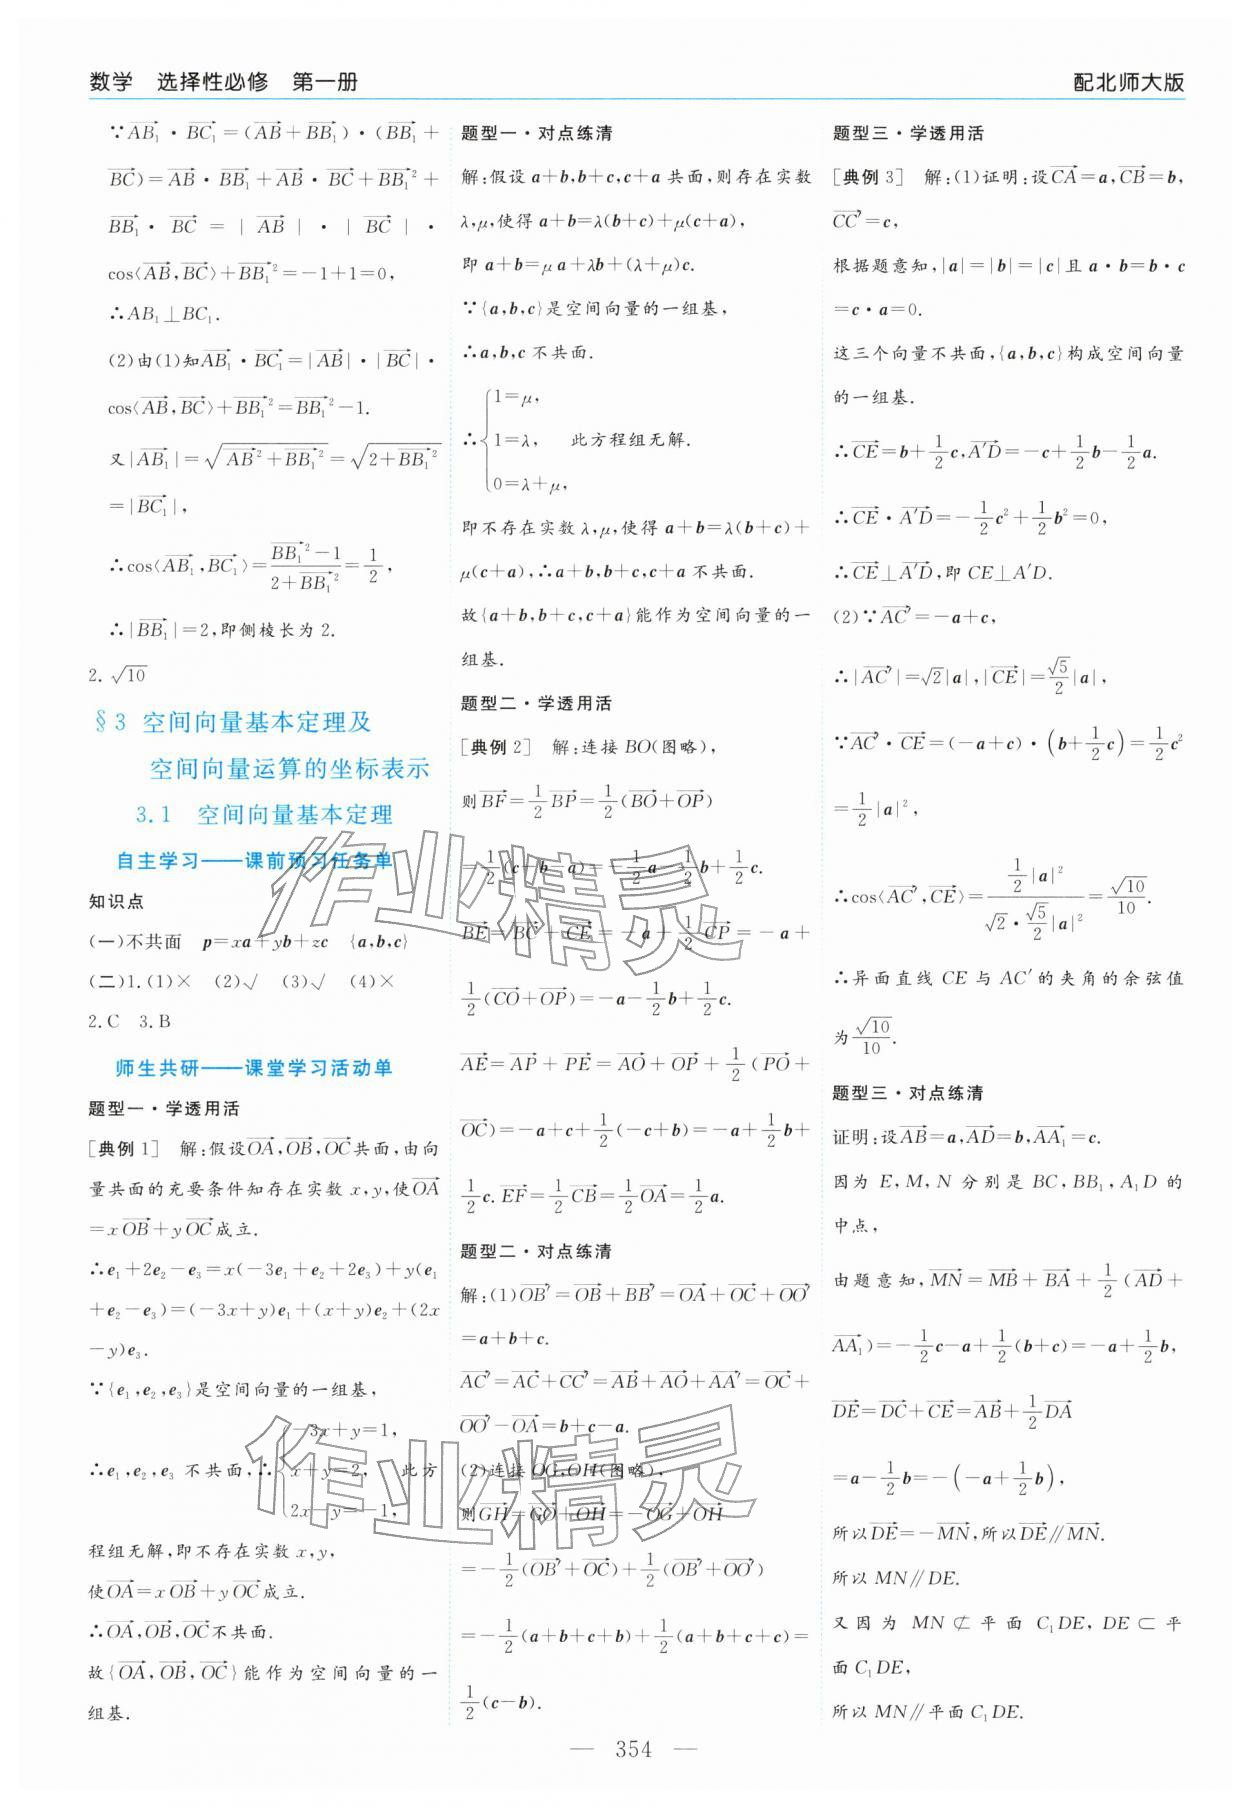 数学 选择性必修 第一册
配北师大版
∵AB₁·BC₁=(AB+BB₁)·(BB₁+
BC)=AB·BB₁+AB·BC+BB₁²+
BB₁·BC=|AB|·|BC|·
cos⟨AB,BC⟩+BB₁²=-1+1=0,
∴AB₁⊥BC₁.
(2)由(1)知AB₁·BC₁=|AB|·|BC|·
cos⟨AB,BC⟩+BB₁²=BB₁²-1.
又|AB₁|=√(AB²+BB₁²)=√(2+BB₁²)
=|BC₁|,
∴cos⟨AB₁,BC₁⟩=(BB₁²-1)/(2+BB₁²)=1/2,
∴|BB₁|=2,即侧棱长为2.
2. √10
§3 空间向量基本定理及
空间向量运算的坐标表示
3.1 空间向量基本定理
自主学习——课前预习任务单
知识点
(一)不共面 p=xa+yb+zc {a,b,c}
(二)1.(1)× (2)√ (3)√ (4)×
2.C 3.B
师生共研——课堂学习活动单
题型一·学透用活
[典例1] 解:假设OA,OB,OC共面,由向
量共面的充要条件知存在实数x,y,使OA
=xOB+yOC成立.
∴e₁+2e₂-e₃=x(-3e₁+e₂+2e₃)+y(e₁
+e₂-e₃)=(-3x+y)e₁+(x+y)e₂+(2x
-y)e₃.
∵{e₁,e₂,e₃}是空间向量的一组基,
-3x+y=1,
∴e₁,e₂,e₃不共面,∴{x+y=2, 此方
2x-y=-1,
程组无解,即不存在实数x,y,
使OA=xOB+yOC成立.
∴OA,OB,OC不共面.
故{OA,OB,OC}能作为空间向量的一
组基.
题型一·对点练清
解:假设a+b,b+c,c+a共面,则存在实数
λ,μ,使得a+b=λ(b+c)+μ(c+a),
即a+b=μa+λb+(λ+μ)c.
∵{a,b,c}是空间向量的一组基,
∴a,b,c不共面.
1=μ,
∴{1=λ, 此方程组无解.
0=λ+μ,
即不存在实数λ,μ,使得a+b=λ(b+c)+
μ(c+a),∴a+b,b+c,c+a不共面.
故{a+b,b+c,c+a}能作为空间向量的一
组基.
题型二·学透用活
[典例2] 解:连接BO(图略),
则BF=1/2BP=1/2(BO+OP)
=1/2(c-b-a)=-1/2a-1/2b+1/2c.
BE=BC+CE=-a+1/2CP=-a+
1/2(CO+OP)=-a-1/2b+1/2c.
AE=AP+PE=AO+OP+1/2(PO+
OC)=-a+c+1/2(-c+b)=-a+1/2b+
1/2c.EF=1/2CB=1/2OA=1/2a.
题型二·对点练清
解:(1)OB′=OB+BB′=OA+OC+OO′
=a+b+c.
AC′=AC+CC′=AB+AO+AA′=OC+
OO′-OA=b+c-a.
(2)连接OG,OH(图略),
则GH=GO+OH=-OG+OH
=-1/2(OB′+OC)+1/2(OB′+OO′)
=-1/2(a+b+c+b)+1/2(a+b+c+c)=
1/2(c-b).
题型三·学透用活
[典例3] 解:(1)证明:设CA=a,CB=b,
CC′=c,
根据题意知,|a|=|b|=|c|且a·b=b·c
=c·a=0.
这三个向量不共面,{a,b,c}构成空间向量
的一组基.
∴CE=b+1/2c,A′D=-c+1/2b-1/2a.
∴CE·A′D=-1/2c²+1/2b²=0,
∴CE⊥A′D,即CE⊥A′D.
(2)∵AC′=-a+c,
∴|AC′|=√2|a|,|CE|=√5/2|a|,
∵AC′·CE=(-a+c)·(b+1/2c)=1/2c²
=1/2|a|²,
∴cos⟨AC′,CE⟩=(1/2|a|²)/(√2·√5/2|a|²)=√10/10.
∴异面直线CE与AC′的夹角的余弦值
为√10/10.
题型三·对点练清
证明:设AB=a,AD=b,AA₁=c.
因为E,M,N分别是BC,BB₁,A₁D的
中点,
由题意知,MN=MB+BA+1/2(AD+
AA₁)=-1/2c-a+1/2(b+c)=-a+1/2b,
DE=DC+CE=AB+1/2DA
=a-1/2b=-(-a+1/2b),
所以DE=-MN,所以DE∥MN.
所以MN∥DE.
又因为MN⊄平面C₁DE,DE⊂平
面C₁DE,
所以MN∥平面C₁DE.
作业精灵
作业精灵
— 354 —